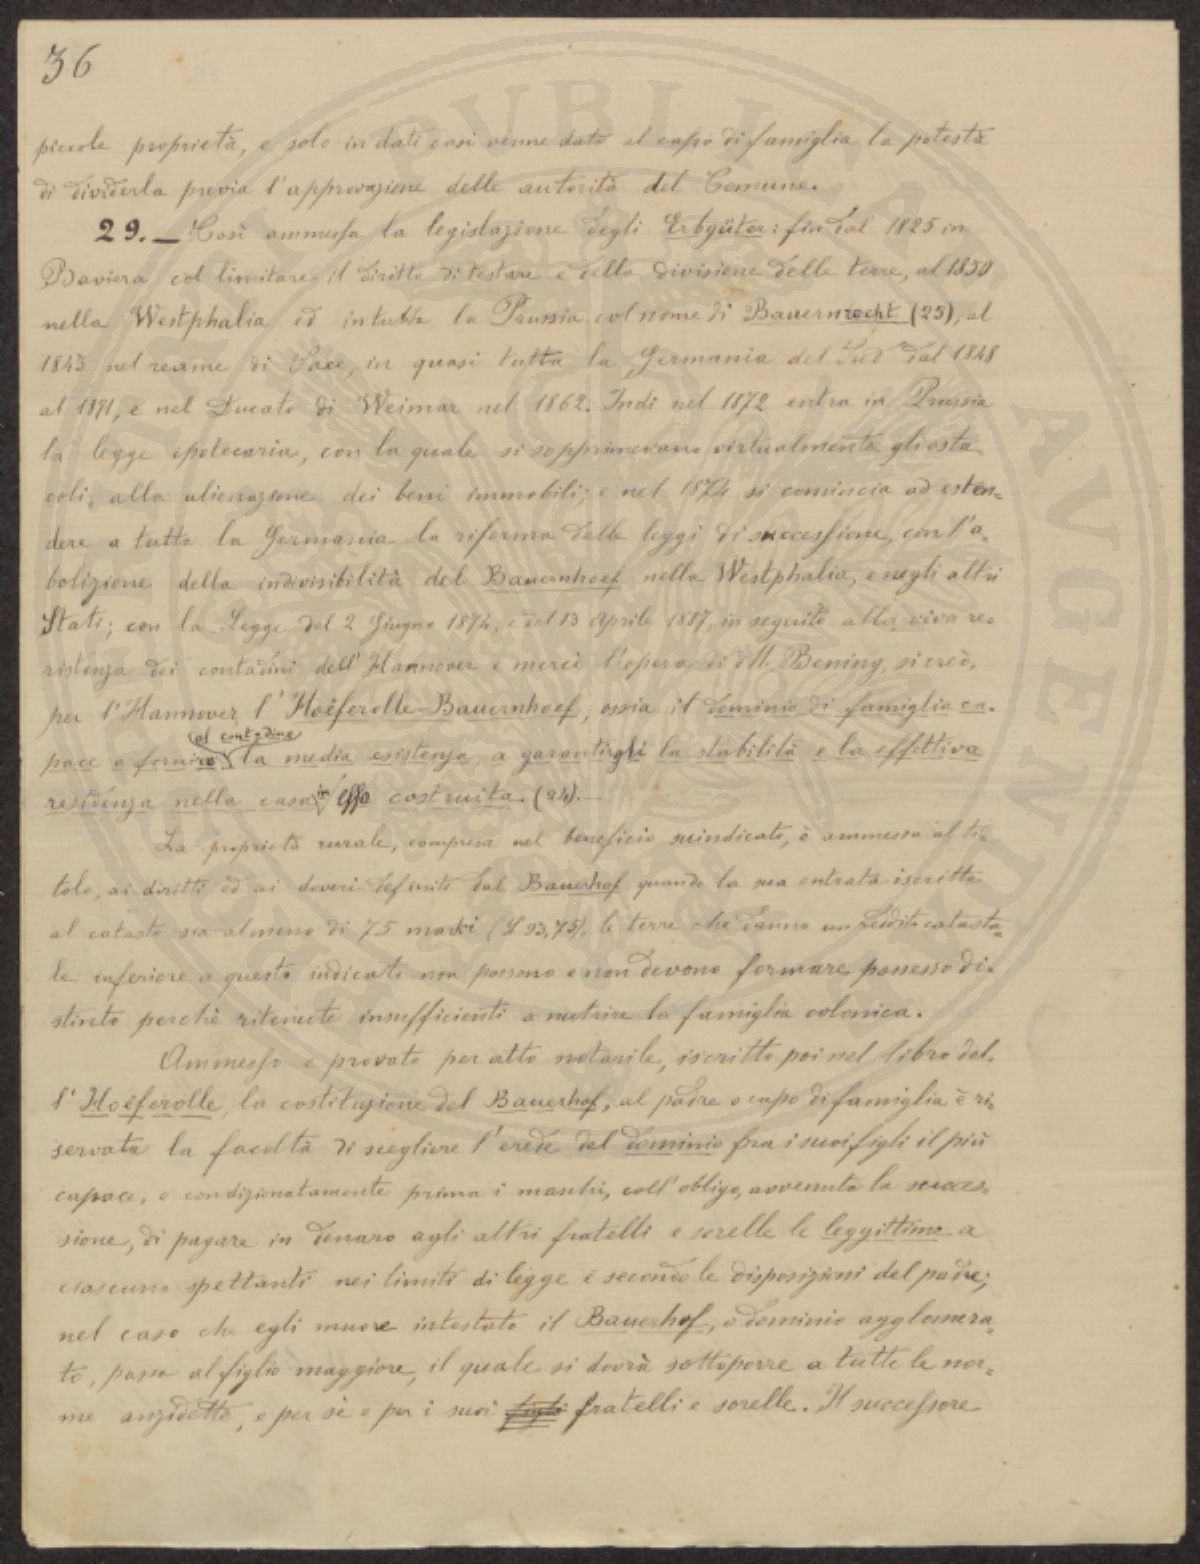 36
piccole proprietà, e solo in dati casi venne dato al capo di famiglia la potestà
di dividerla previa l'approvazione delle autorità del Comune.
29. — Così ammessa la legislazione degli Erbgüter: fin dal 1825 in
Baviera col limitare il diritto di testare e della divisione delle terre, al 1850
nella Westphalia ed in tutta la Prussia col nome di Bauernrecht (23), al
1843 nel reame di Saxe, in quasi tutta la Germania del Sud dal 1848
al 1871, e nel Ducato di Weimar nel 1862. Indi nel 1872 entra in Prussia
la legge ipotecaria, con la quale si sopprimevano virtualmente gli osta-
coli, alla alienazione dei beni immobili; e nel 1874 si comincia ad esten-
dere a tutta la Germania la riforma delle leggi di successione, con l'a-
bolizione della indivisibilità del Bauernhoef nella Westphalia, e negli altri
Stati; con la Legge del 2 Giugno 1874, e del 13 Aprile 1887, in seguito alla viva re-
sistenza dei contadini dell'Hannover e mercè l'opera di M. Bening, si creò,
per l'Hannover, l'Hoëferolle-Bauernhoef, ossia il dominio di famiglia ca-
al contadino
pace a fornire la media esistenza, a garantirgli la stabilità e la effettiva
residenza nella casa in essa costruita. (24).—
La proprietà rurale, compresa nel beneficio suindicato, è ammessa al ti-
tolo, ai diritti ed ai doveri definiti dal Bauerhof quando la sua entrata iscritta
al catasto sia almeno di 75 marki (L 93,75), le terre che danno un reddito catasta-
le inferiore a questo indicato non possono e non devono formare possesso di-
stinto perchè ritenute insufficienti a nutrire la famiglia colonica.
Ammesso e provato per atto notarile, iscritto poi nel libro del-
l'Hoëferolle, la costituzione del Bauerhof, al padre o capo di famiglia è ri-
servata la facoltà di scegliere l'erede del dominio fra i suoi figli il più
capace, e condizionatamente prima i maschi, coll'obligo, avvenuta la succes-
sione, di pagare in denaro agli altri fratelli e sorelle le leggittime a
ciascuno spettanti nei limiti di legge e secondo le disposizioni del padre;
nel caso che egli muore intestato il Bauerhof, o dominio agglomera-
to, passa al figlio maggiore, il quale si dovrà sottoporre a tutte le nor-
me anzidette, e per sè e per i suoi figli fratelli e sorelle. Il successore